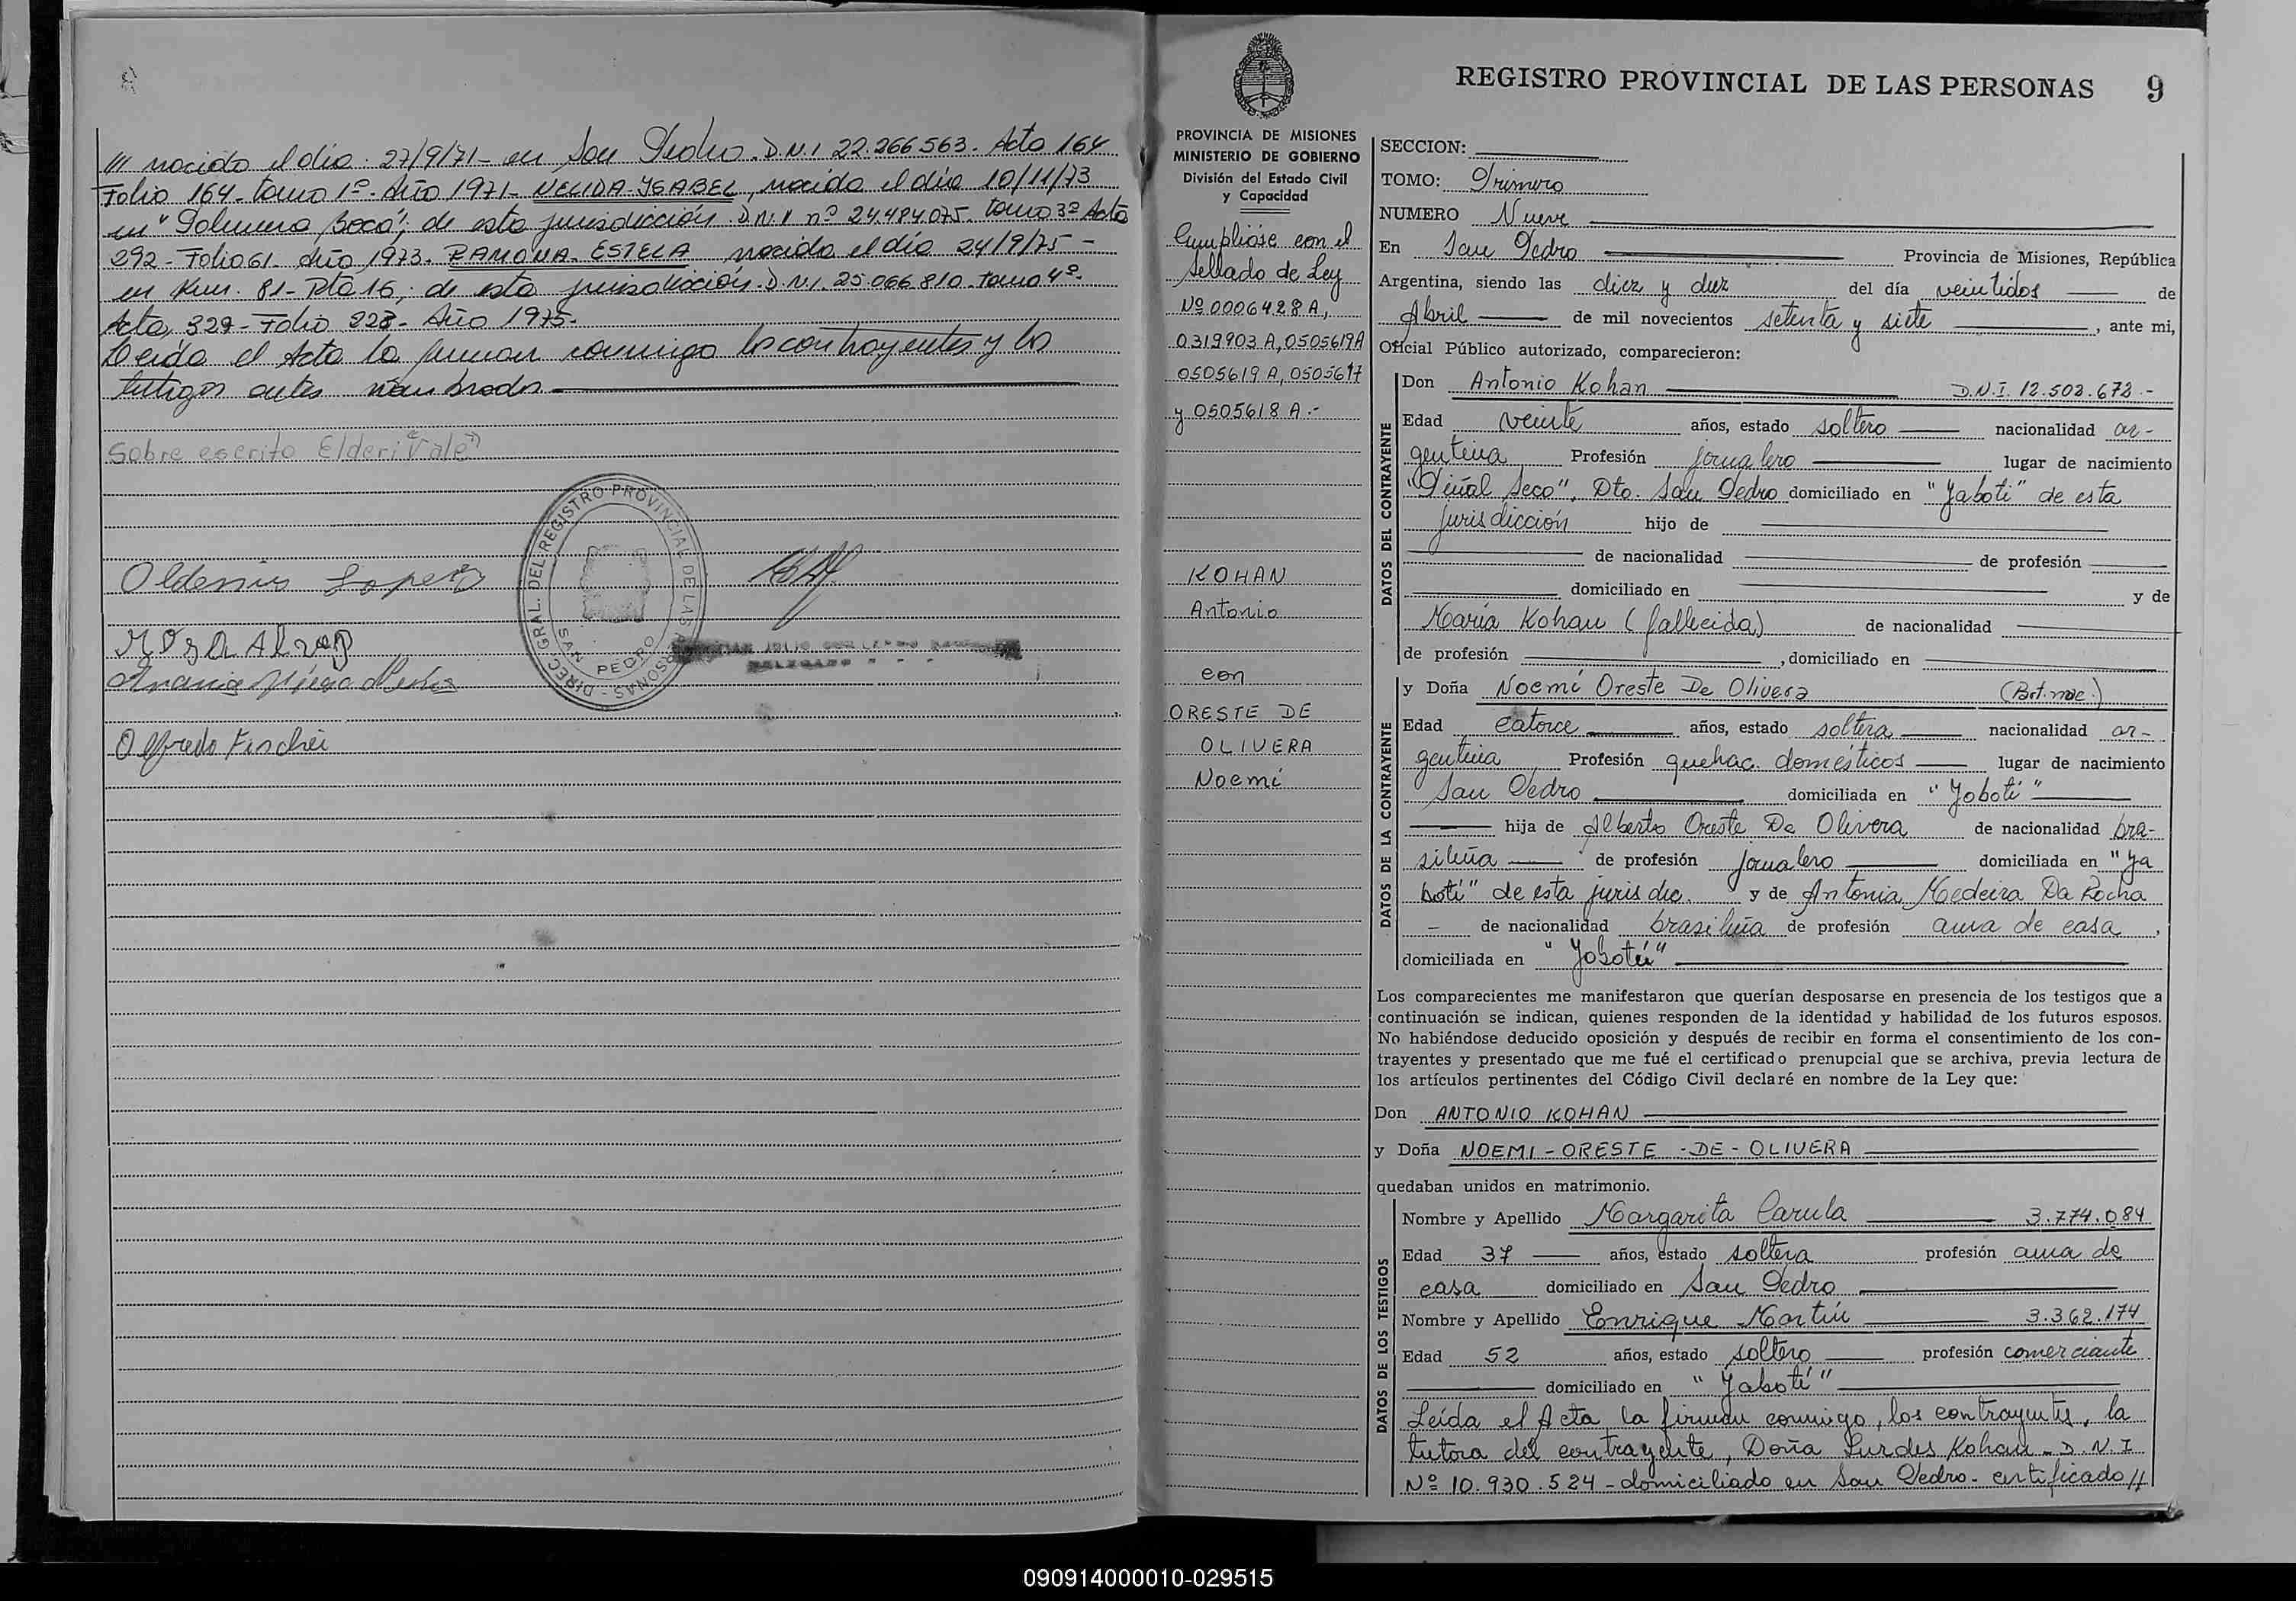 /// nacida el día 27/9/71 - en San Pedro. D.N.I 22.266.563. Acta 164
Folio 164 - tomo 1º - Año 1971 - NELIDA YSABEL, nacida el día 10/11/73
en "Palmera Boca"; de esta jurisdicción. D.N.I nº 24.484.075. tomo 3º Acta
292 - Folio 61 - Año 1973. RAMONA ESTELA nacida el día 24/9/75 -
en Km. 81 - Rta 16; de esta jurisdicción. D.N.I. 25.066.810. tomo 4º-
Acta 329 - Folio 228 - Año 1975.
Leída el Acta la firman conmigo los contrayentes y los
testigos antes nombrado.
Sobre escrito Elderi "Vale"
Rosa
Alfredo
DIREC. GRAL. DEL REGISTRO PROVINCIAL DE LAS PERSONAS -
SAN PEDRO
REGISTRO PROVINCIAL DE LAS PERSONAS 9
PROVINCIA DE MISIONES
MINISTERIO DE GOBIERNO
División del Estado Civil
y Capacidad
Cumplióse con el
sellado de Ley
Nº 0006428 A,
0319903 A, 0505619A
0505619 A, 0505617
y 0505618 A.-
KOHAN
Antonio
con
ORESTE DE
OLIVERA
Noemí
SECCION:
TOMO: Primero
NUMERO Nueve
En San Pedro Provincia de Misiones, República
Argentina, siendo las diez y diez del día veintidos de
Abril de mil novecientos setenta y siete, ante mi,
Oficial Público autorizado, comparecieron:
DATOS DEL CONTRAYENTE
Don Antonio Kohan D.N.I. 12.502.672.-
Edad veinte años, estado soltero nacionalidad ar-
gentina Profesión jornalero lugar de nacimiento
"Piñal Seco", Dto. San Pedro domiciliado en "Yaboti" de esta
jurisdicción hijo de
de nacionalidad de profesión
domiciliado en y de
María Kohan (fallecida) de nacionalidad
de profesión , domiciliado en
DATOS DE LA CONTRAYENTE
y Doña Noemí Oreste De Olivera (Part. nac.)
Edad catorce años, estado soltera nacionalidad ar-
gentina Profesión quehac. domésticos lugar de nacimiento
San Pedro domiciliada en "Yabotí"
hija de Alberto Oreste De Olivera de nacionalidad bra-
sileña de profesión jornalero domiciliada en "Ya
botí" de esta jurisdic. y de Antonia Medeira Da Rocha
- de nacionalidad brasileña de profesión ama de casa,
domiciliada en "Yabotí"
Los comparecientes me manifestaron que querían desposarse en presencia de los testigos que a
continuación se indican, quienes responden de la identidad y habilidad de los futuros esposos.
No habiéndose deducido oposición y después de recibir en forma el consentimiento de los con-
trayentes y presentado que me fué el certificado prenupcial que se archiva, previa lectura de
los artículos pertinentes del Código Civil declaré en nombre de la Ley que:
Don ANTONIO KOHAN
y Doña NOEMI - ORESTE - DE - OLIVERA
quedaban unidos en matrimonio.
DATOS DE LOS TESTIGOS
Nombre y Apellido Margarita Carula 3.774.084
Edad 37 años, estado soltera profesión ama de
casa domiciliado en San Pedro
Nombre y Apellido Enrique Martín 3.362.174
Edad 52 años, estado soltero profesión comerciante
domiciliado en "Yabotí"
Leída el Acta la firman conmigo, los contrayentes, la
tutora del contrayente, Doña Lurdes Kohan - D.N.I
Nº 10.930.524 - domiciliado en San Pedro - certificado //
090914000010-029515